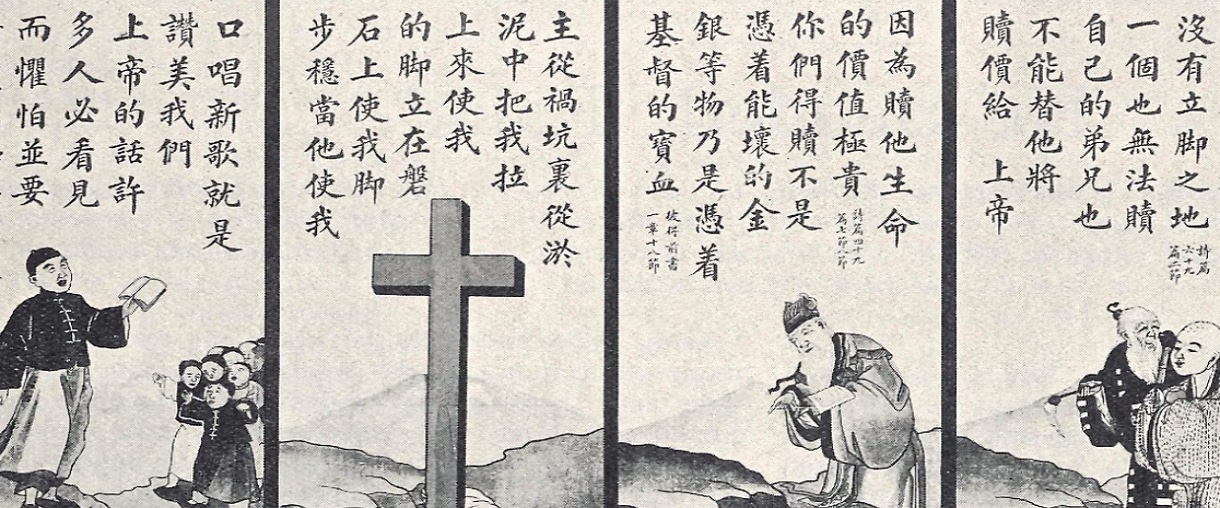 沒有立脚之地
詩篇六十九篇二節
一個也無法贖
自己的弟兄也
不能替他將
贖價給 上帝
因為贖他生命
的價值極貴
詩篇四十九篇七節八節
你們得贖不是
憑着能壞的金
銀等物乃是憑着
基督的寶血
彼得前書一章十八節
主從禍坑裏從淤
泥中把我拉
上來使我
的脚立在磐
石上使我脚
步穩當他使我
口唱新歌就是
讚美我們
上帝的話許
多人必看見
而懼怕並要